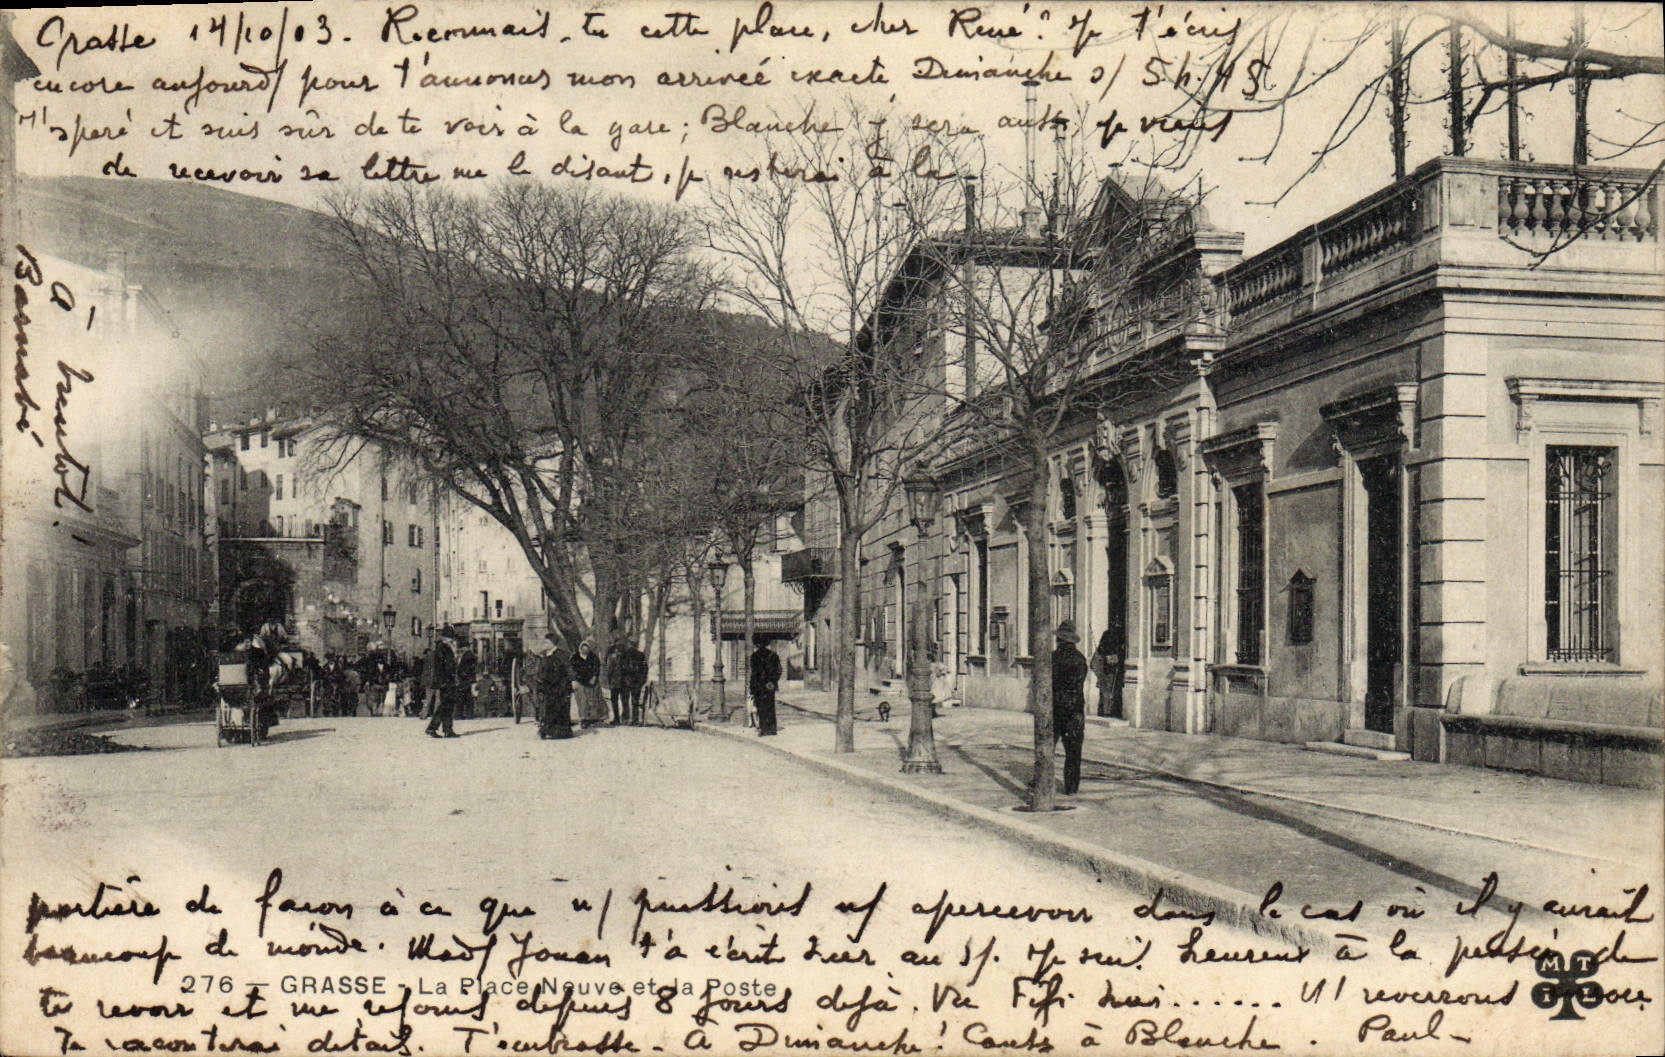 Grasse 14/10/03. Reconnais-tu cette place, cher René? Je t'écris
encore aujourd/ pour t'annoncer mon arrivée exacte Dimanche s/ 5 h. 45
J'espère et suis sûr de te voir à la gare; Blanche y sera aussi, je viens
de recevoir sa lettre me le disant, je resterai à la
portière de façon à ce que n/ puissions n/ apercevoir dans le cas où il y aurait
beaucoup de monde. Mad/ Jouan t'a écrit hier au s/. Je suis heureux à la pensée de
276 — GRASSE - La Place Neuve et la Poste
te revoir et me réjouis depuis 8 jours déjà. Vu Fifi hier...... N/ reverrons
Te raconterai détails. T'embrasse - À Dimanche! à Blanche. Paul-
À bientôt.
Barnabé
MTIL